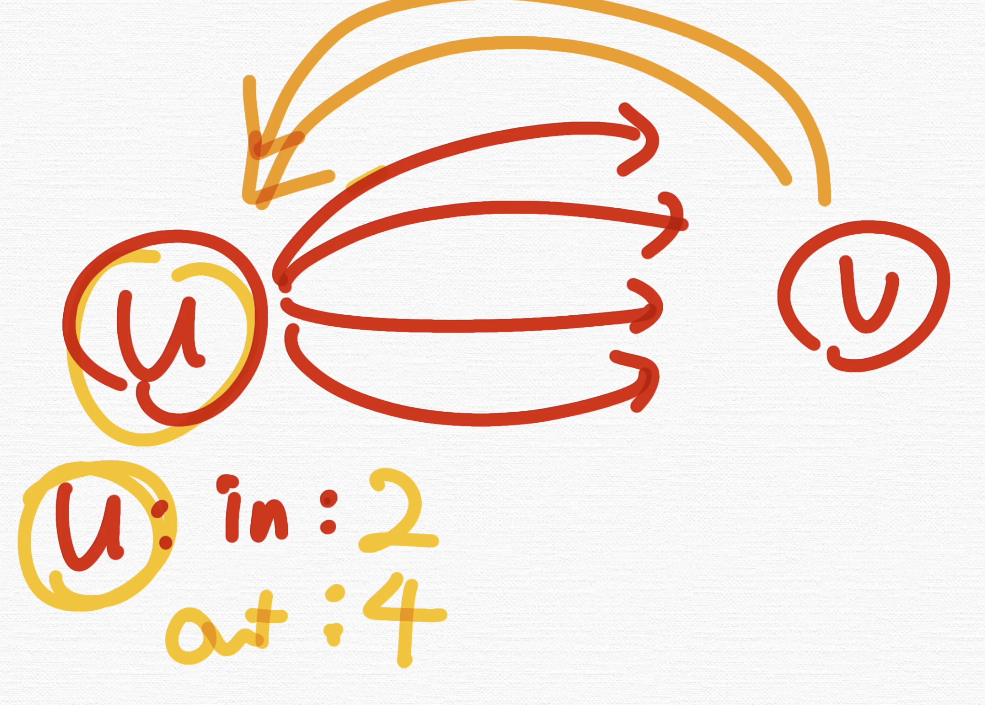 u v
u: in: 2
out: 4